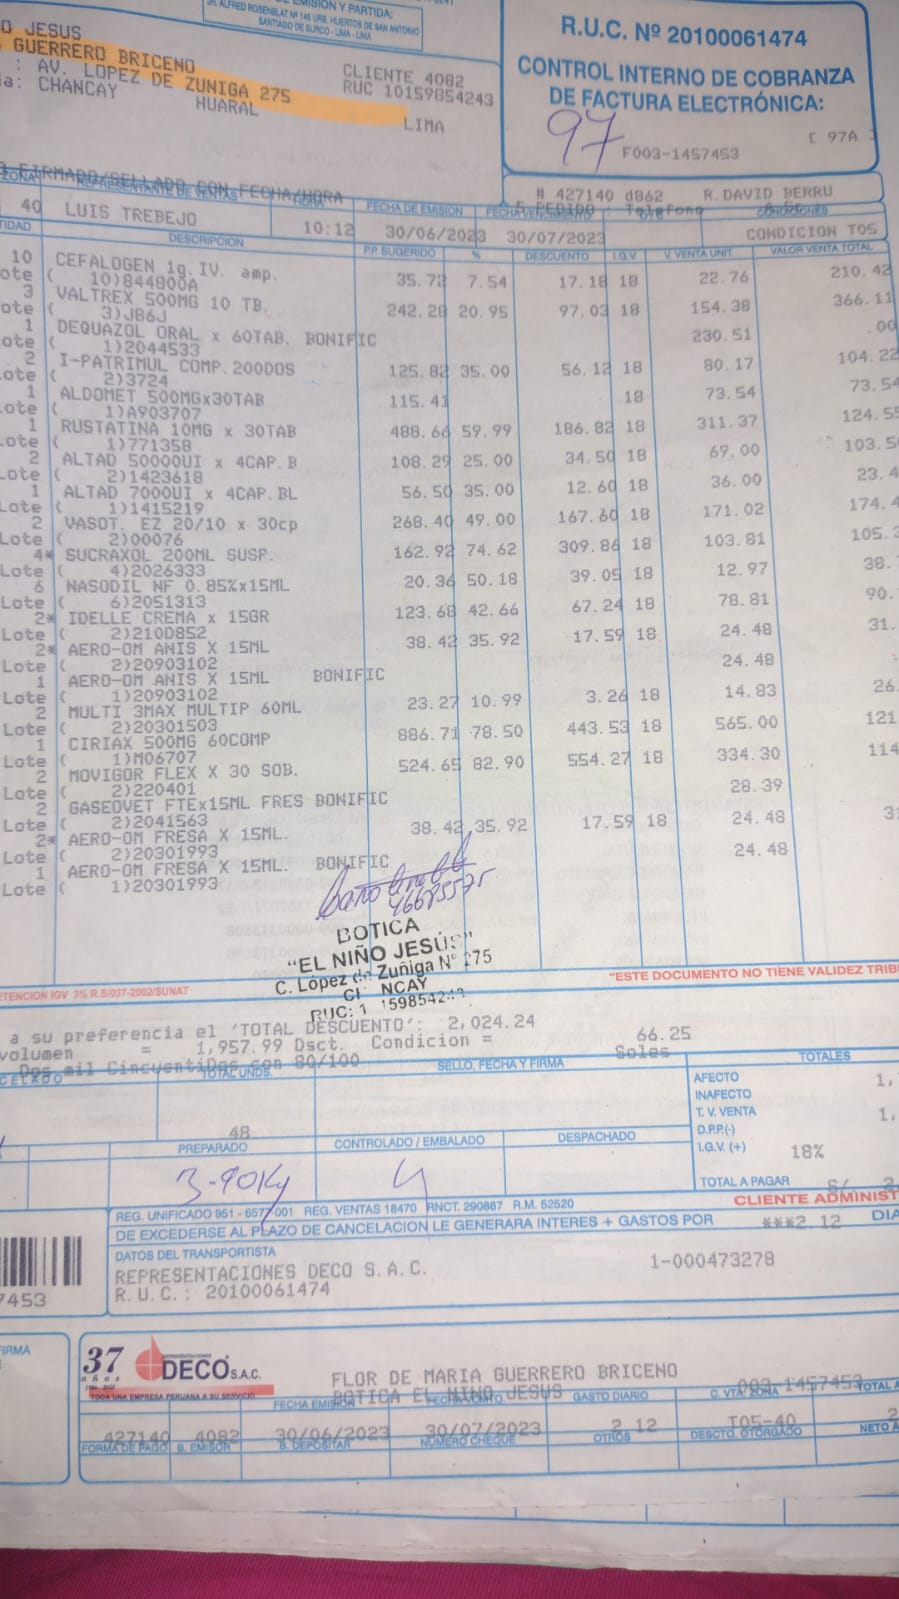 EMISIÓN Y PARTIDA:
SR. ALFRED ROSENBLAT Nº 145 URB. HUERTOS DE SAN ANTONIO
SANTIAGO DE SURCO - LIMA - LIMA
O JESUS
GUERRERO BRICENO
: AV. LOPEZ DE ZUNIGA 275
a: CHANCAY HUARAL
LIMA
CLIENTE 4082
RUC 10159854243
R.U.C. Nº 20100061474
CONTROL INTERNO DE COBRANZA
DE FACTURA ELECTRÓNICA:
97
F003-1457453 [ 97A ]
FIRMADO/SELLADO CON FECHA/HORA
# 427140 d862 R.DAVID BERRU
PEDIDO : Telefono
ZONA REPRESENTANTE DE VENTAS HORA FECHA DE EMISION FECHA VENCIMIENTO CONDICIONES
40 LUIS TREBEJO 10:12 30/06/2023 30/07/2023 CONDICION T05
TIDAD DESCRIPCION P.P. SUGERIDO % DESCUENTO I.G.V. V. VENTA UNIT. VALOR VENTA TOTAL
10 CEFALOGEN 1g.IV. amp. 35.72 7.54 17.18 18 22.76 210.42
ote ( 10)844800A
3 VALTREX 500MG 10 TB. 242.28 20.95 97.03 18 154.38 366.11
ote ( 3)J86J
1 DEQUAZOL ORAL x 60TAB. BONIFIC 230.51 .00
ote ( 1)2044533
2 I-PATRIMUL COMP.200DOS 125.82 35.00 56.12 18 80.17 104.22
Lote ( 2)3724
1 ALDOMET 500MGx30TAB 115.41 18 73.54 73.54
Lote ( 1)A903707
1 RUSTATINA 10MG x 30TAB 488.66 59.99 186.82 18 311.37 124.55
Lote ( 1)771358
2 ALTAD 50000UI x 4CAP.B 108.29 25.00 34.50 18 69.00 103.5
Lote ( 2)1423618
1 ALTAD 7000UI x 4CAP.BL 56.50 35.00 12.60 18 36.00 23.4
Lote ( 1)1415219
2 VASOT. EZ 20/10 x 30cp 268.40 49.00 167.60 18 171.02 174.4
Lote ( 2)00076
4* SUCRAXOL 200ML SUSP. 162.92 74.62 309.86 18 103.81 105.
Lote ( 4)2026333
6 NASODIL NF 0.85%x15ML 20.36 50.18 39.05 18 12.97 38.
Lote ( 6)2051313
2* IDELLE CREMA x 15GR 123.68 42.66 67.24 18 78.81 90.
Lote ( 2)210D852
2* AERO-OM ANIS X 15ML 38.42 35.92 17.59 18 24.48 31.
Lote ( 2)20903102
1 AERO-OM ANIS X 15ML BONIFIC 24.48
Lote ( 1)20903102
2 MULTI 3MAX MULTIP 60ML 23.27 10.99 3.26 18 14.83 26.
Lote ( 2)20301503
1 CIRIAX 500MG 60COMP 886.71 78.50 443.53 18 565.00 121
Lote ( 1)M06707
2 MOVIGOR FLEX X 30 SOB. 524.65 82.90 554.27 18 334.30 114
Lote ( 2)220401
2 GASEOVET FTEx15ML FRES BONIFIC 28.39
Lote ( 2)2041563
2* AERO-OM FRESA X 15ML. 38.42 35.92 17.59 18 24.48 31
Lote ( 2)20301993
1 AERO-OM FRESA X 15ML. BONIFIC 24.48
Lote ( 1)20301993
BOTICA
"EL NIÑO JESÚS"
C. López de Zuñiga Nº 275
RETENCION IGV 3% R.S/037-2002/SUNAT
"ESTE DOCUMENTO NO TIENE VALIDEZ TRIB
a su preferencia el 'TOTAL DESCUENTO': 2,024.24
volumen = 1,957.99 Dsct. Condicion = 66.25
Dos mil Cincuentidos con 80/100 Soles
CELADO TOTAL UNDS. SELLO, FECHA Y FIRMA TOTALES
48
AFECTO 1,
INAFECTO
T. V. VENTA 1,
D.P.P.(-)
I.G.V. (+) 18%
TOTAL A PAGAR S/ 2
PREPARADO CONTROLADO / EMBALADO DESPACHADO
CLIENTE ADMINIST
REG. UNIFICADO 951 - 6577-001 REG. VENTAS 18470 RNCT. 290887 R.M. 52520
DE EXCEDERSE AL PLAZO DE CANCELACION LE GENERARA INTERES + GASTOS POR ***2.12 DIA
DATOS DEL TRANSPORTISTA
REPRESENTACIONES DECO S.A.C. 1-000473278
R.U.C.: 20100061474
7453
FIRMA
37 años
REPRESENTACIONES
DECO S.A.C.
TODA UNA EMPRESA PERUANA A SU SERVICIO
FLOR DE MARIA GUERRERO BRICENO
BOTICA EL NINO JESUS 003-1457453
FECHA EMISION GASTO DIARIO C. VTA. ZONA TOTAL A
427140 4082 30/06/2023 30/07/2023 2.12 T05-40 2
FORMA DE PAGO B. EMISOR B. DEPOSITAR NUMERO CHEQUE OTROS DESCTO. OTORGADO NETO A